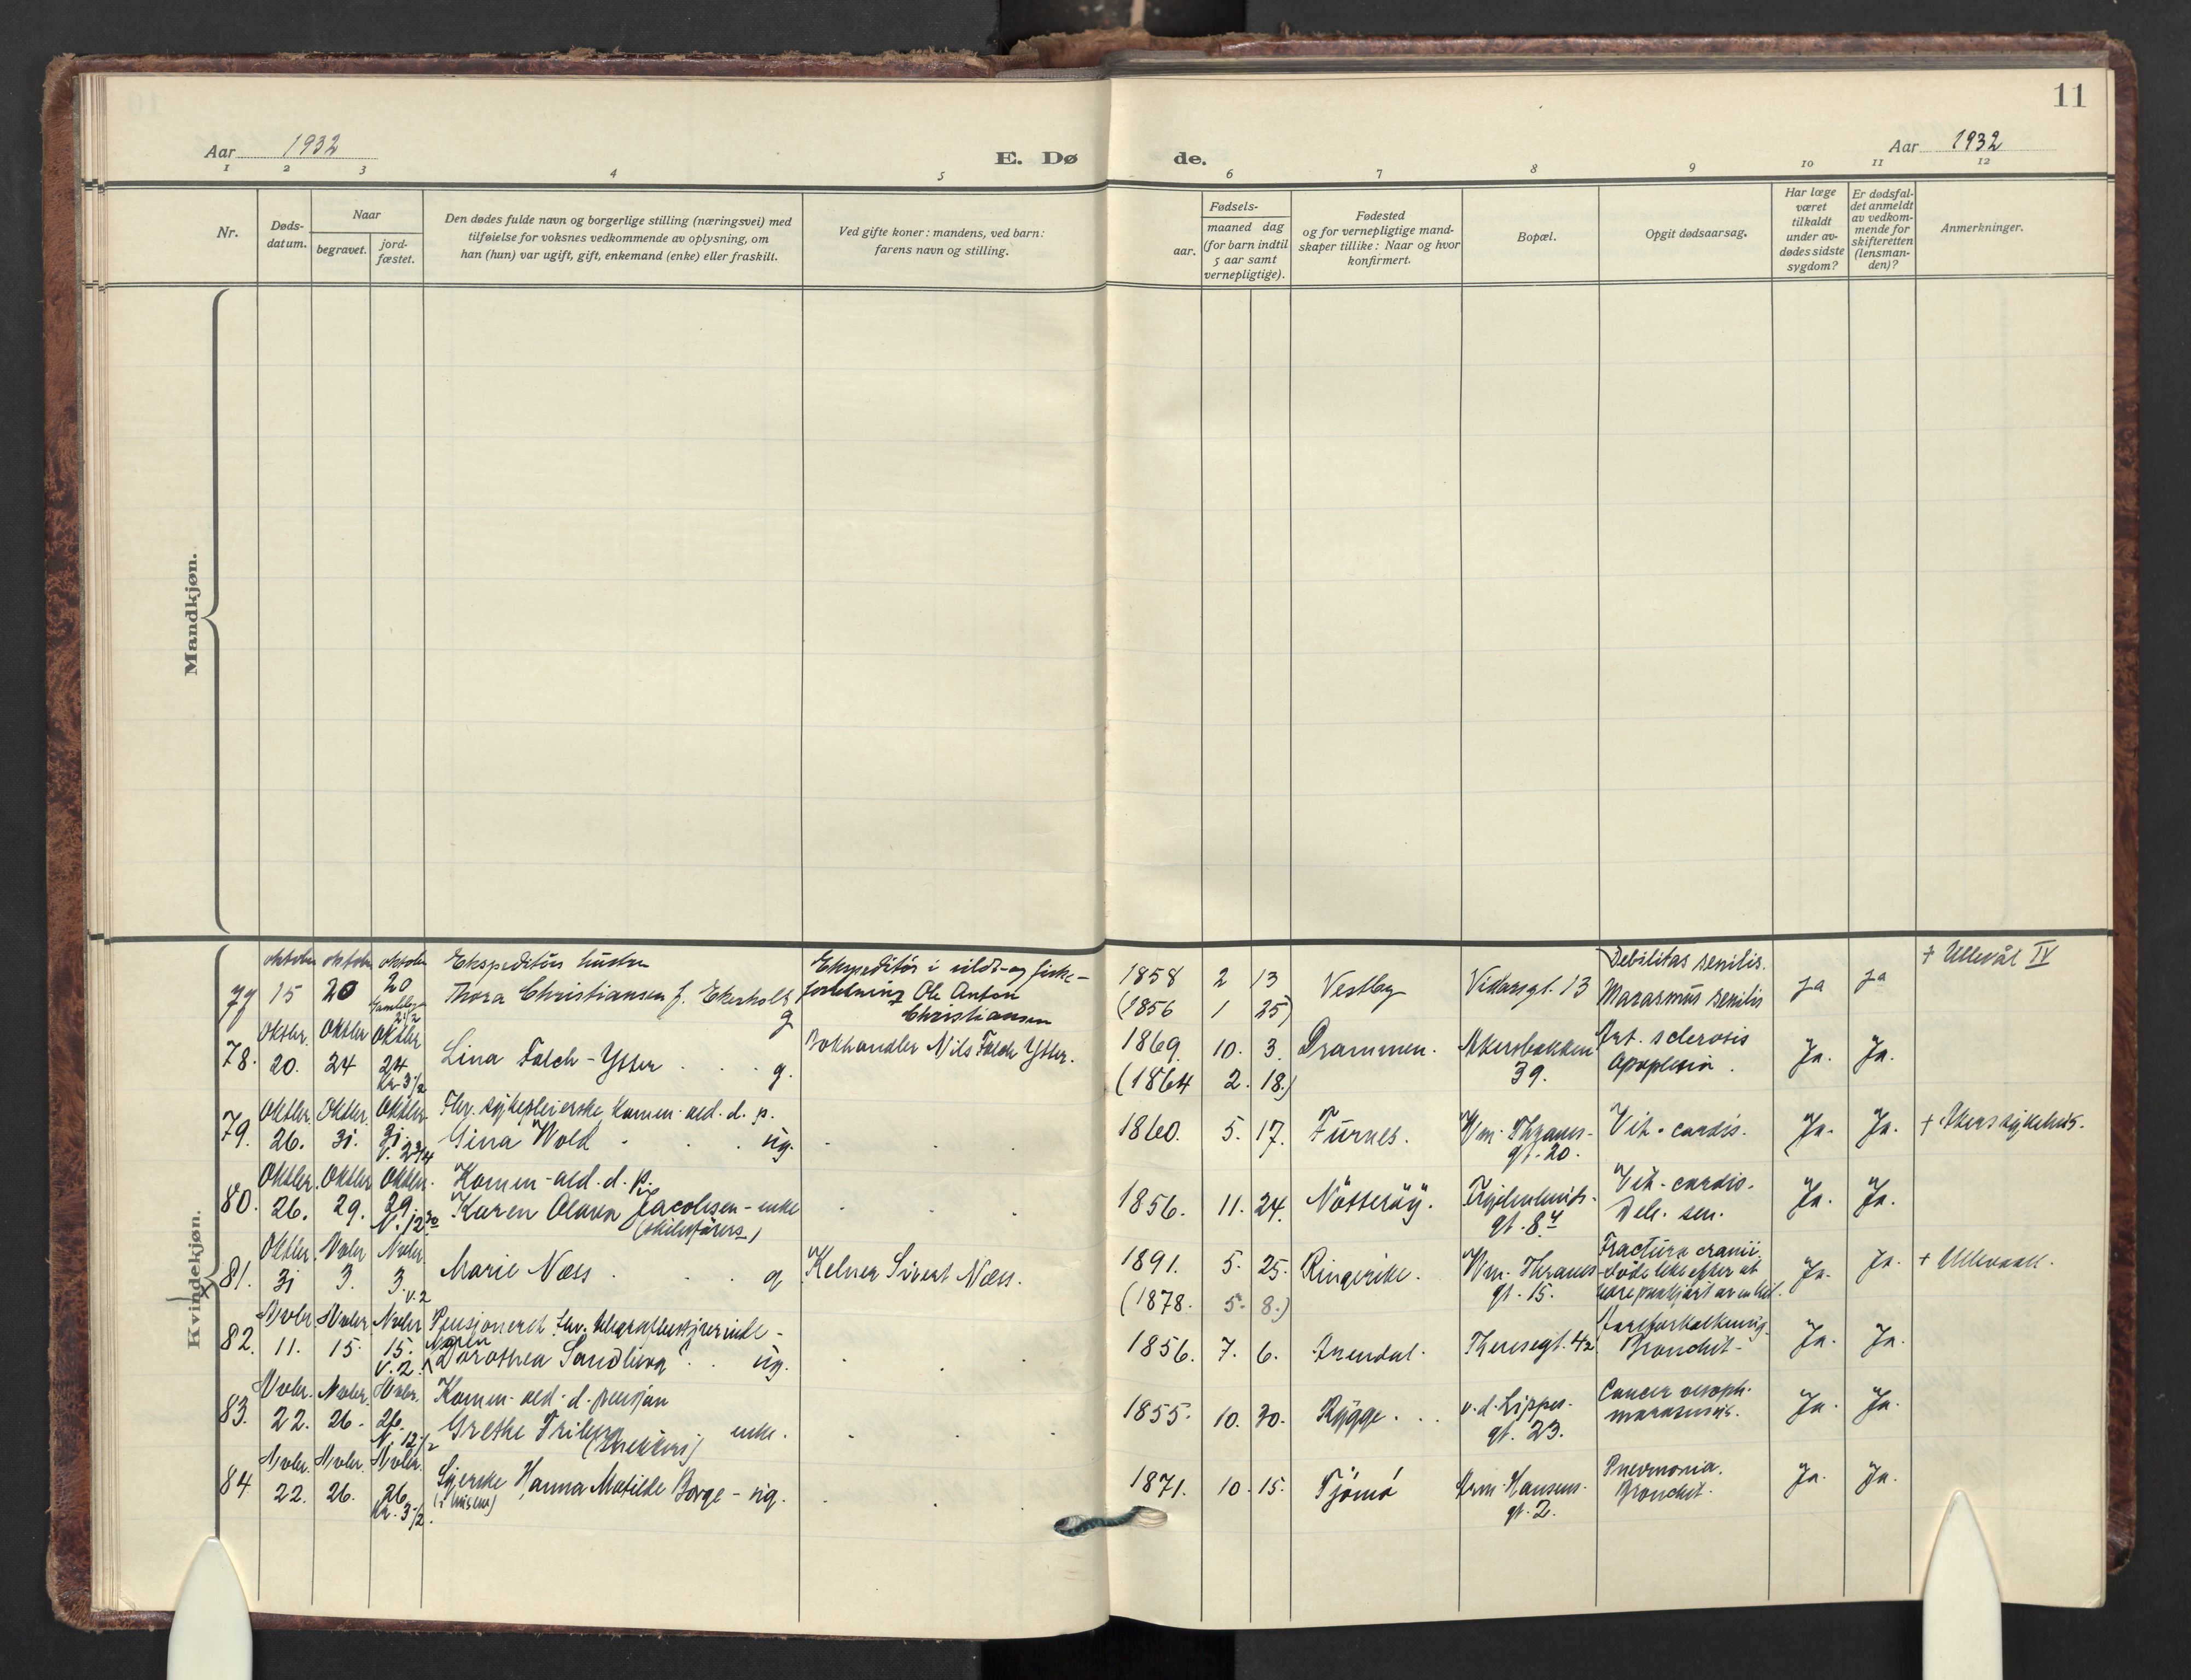 11
Aar 1932
E. Dø
de.
Aar 1932
1 2 3 4 5
6 7 8 9 10 11 12
Nr.
Døds-
datum.
Naar
begravet.
jord-
fæstet.
Den dødes fulde navn og borgerlige stilling (næringsvei) med
tilføielse for voksnes vedkommende av oplysning, om
han (hun) var ugift, gift, enkemand (enke) eller fraskilt.
Ved gifte koner: mandens, ved barn:
farens navn og stilling.
Fødsels-
aar.
maaned dag
(for barn indtil
5 aar samt
vernepligtige).
Fødested
og for vernepligtige mand-
skaper tillike: Naar og hvor
konfirmert.
Bopæl.
Opgit dødsaarsag.
Har læge
været
tilkaldt
under av-
dødes sidste
sygdom?
Er dødsfal-
det anmeldt
av vedkom-
mende for
skifteretten
(lensman-
den)?
Anmerkninger.
Mandkjøn.
Kvindekjøn.
oktober oktober oktober Ekspeditørs hustru Ekspeditør i vildt- og fiske-
77 15 20 20 Thora Christiansen f. Ekerholt g forretning Ole Anton
Christiansen
1858 2 13 Vestby Vidarsgt. 13 Debilitas senilis. Marasmus senilis ja ja + Ullevål IV
(1856 1 25)
Oktbr. Oktbr Oktbr
78. 20. 24 24 Lina Falch-Ytter g. Bokhandler Nils Falch Ytter.
Kr. 3 1/2
1869. 10. 3. Drammen. Akersbakken 39. Art. sclerosis Apoplexia. Ja. Ja.
(1864 2. 18.)
Oktbr. Oktbr. Oktbr. Fhv. sykepleierske Komm. ald. d. p.
79. 26. 31. 31. Gina Wold ug.
V. 2 3/4
1860. 5. 17. Furnes. Wm. Thranes- gt. 20. Vit. cordis. Ja. Ja. + Akers sykehus.
Oktbr. Oktbr Oktbr. Komm-ald. d. p.
80. 26. 29. 29. Karen Olava Jacobsen - enke
N. 12 30
1856. 11. 24. Nötteröy. gt. 8 Vit. cordis. Deb. sen. Ja. Ja.
Oktbr. Nvbr Nvbr.
81. 31 3. 3. Marie Næss g Kelner Sivert Næss.
V. 2
1891. 5. 25. Ringerike. Wm. Thranes gt. 15. Fractura cranii. döde like efter at være paakjørt av en bil. Ja. Ja. + Ullevaall.
(1878. 5. 8.)
Nvbr. Nvbr. Nvbr Pensjoneret fhv.
82. 11. 15. 15. Maren Dorothea ug.
V. 2.
1856. 7. 6. Arendal. Theresegt. 42 Aareforkalkning. Bronchit- Ja. Ja.
Nvbr. Nvbr. Nvbr. Komm. ald. d. pensjon
83. 22. 26. 26. Grethe Friberg enke.
N. 12 1/2
1855. 10. 30. Rygge. v. d. Lippes- gt. 23. Cancer oesoph. marasmus. Ja. Ja.
Nvbr. Nvbr. Nvbr.
84 22. 26. 26 Syerske Hanna Matilde Borge - ug.
Kr. 3 1/2.
1871. 10. 15. Tjömö Arm. Hansens- gt. 2. Pneumonia. Bronchit. Ja. Ja.